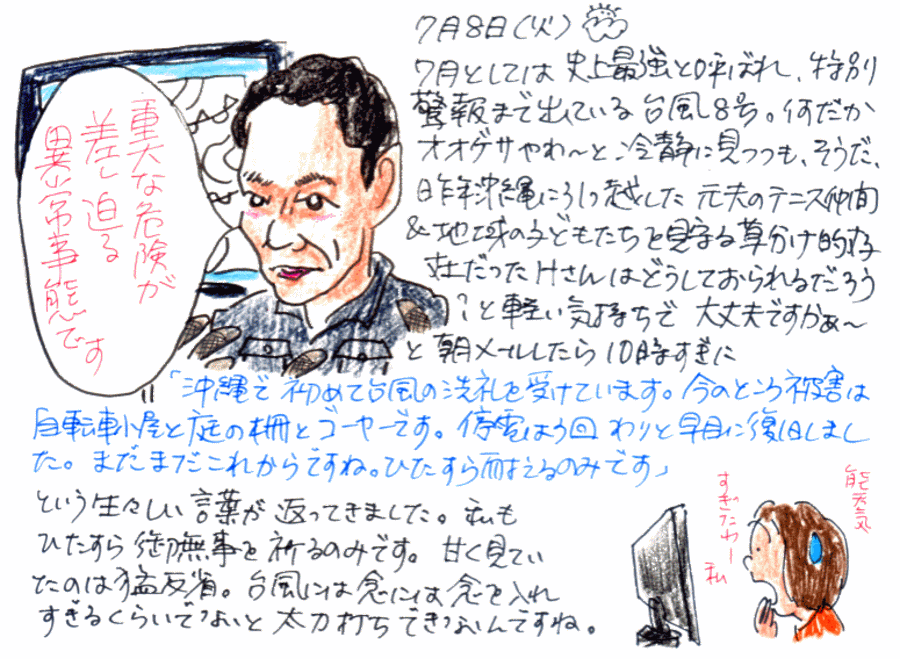 7月8日(火)
7月としては史上最強と呼ばれ、特別
警報まで出ている台風8号。何だか
オオゲサやわ〜と冷静に見つつも、そうだ、
昨年沖縄にろし越しした元夫のテニス仲間
&地域の子どもたちを見守る草分け的存
在だったHさんはどうしておられるだろう
?と軽い気持ちで 大丈夫ですかぁ〜
と朝メールしたら10時すぎに
重大な危険が
差し迫る
異常事態です
「沖縄で初めて台風の洗礼を受けています。今のところ被害は
自転車小屋と庭の柵とゴーヤーです。停電は3回 わりと早目に復旧しまし
た。まだまだこれからですね。ひたすら耐えるのみです」
という生々しい言葉が返ってきました。私も
ひたすら御無事を祈るのみです。甘く見てい
たのは猛反省。台風には念には念を入れ
すぎるくらいでないと太刀打ちできないんですね。
能天気
すぎたわー
私